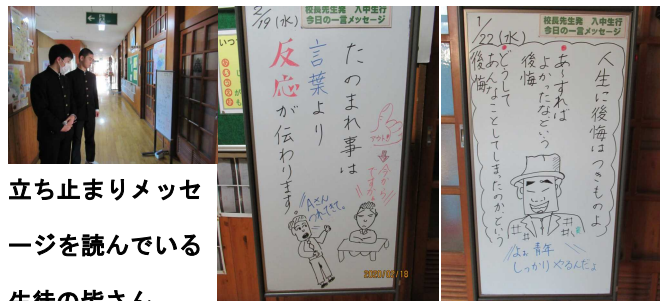 立ち止まりメッセ
ージを読んでいる
生徒の皆さん
2/19(水)
校長先生発 入中生行
今日の一言メッセージ
たのまれ事は
言葉より
反応が伝わります。
Aさん
つれてきて。
2020/02/19
1/22(水)
校長先生発 入中生行
今日の一言メッセージ
人生に後悔はつきものよ
あ〜すれば
よかったなどという
後悔
どうして
あんなことしてしまったのかという
後悔
よぉ 青年
しっかりやるんだよ